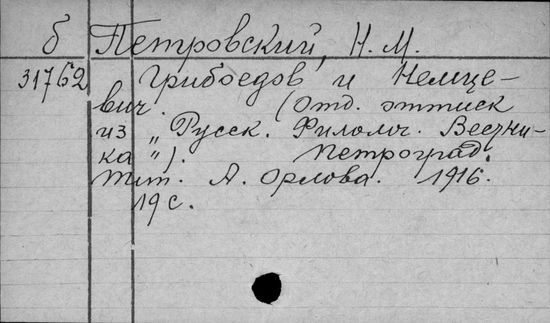 б Петровский, Н. М.
31762 Грибоедов и Немце-
вич. (Отд. оттиск
из „Русск. Филолог. Вестни-
ка"). Петроград.
Тип. А. Орлова. 1916.
19 с.